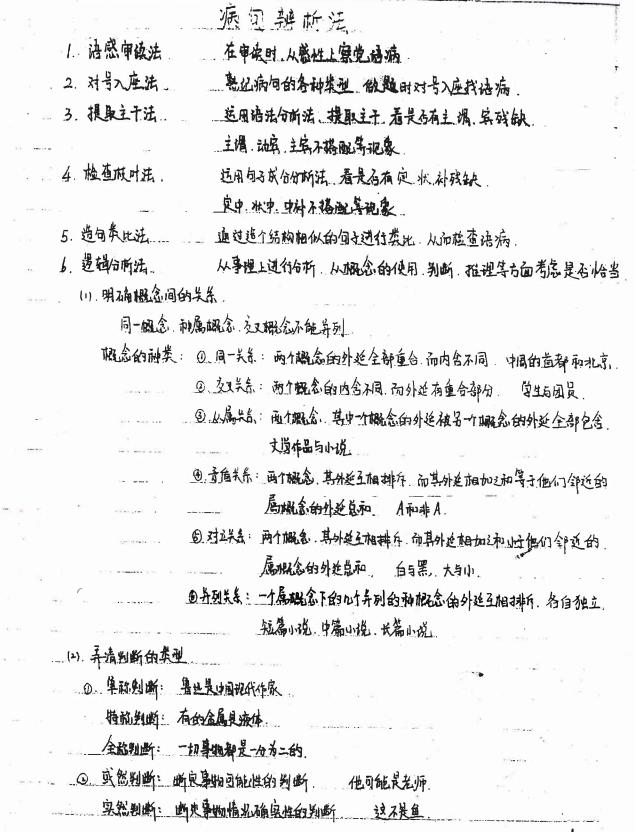 病句辨析法
1. 语感审读法 在审读时,从感性上察觉语病
2. 对号入座法 熟记病句的各种类型,做题时对号入座找语病.
3. 提取主干法 运用语法分析法、提取主干.看是否有主.谓.宾残缺.
主谓.动宾.主宾不搭配等现象
4. 检查枝叶法. 运用句子成分分析法.看是否有定.状.补残缺
定中.状中.中补不搭配等现象
5. 造句类比法 通过造个结构相似的句子进行类比.从而检查语病.
6. 逻辑分析法. 从事理上进行分析.从概念的使用.判断.推理等方面考虑是否恰当
(1).明确概念间的关系.
同一概念.和属概念.交叉概念不能并列.
概念的种类: ①同一关系: 两个概念的外延全部重合.而内含不同. 中国的首都和北京.
②交叉关系: 两个概念的内含不同.而外延有重合部分. 学生与团员.
③从属关系: 两个概念.其中一个概念的外延被另一个概念的外延全部包含.
文学作品与小说
④矛盾关系: 两个概念.其外延互相排斥.而其外延相加之和等于他们邻近的
属概念的外延总和. A和非A.
⑤对立关系: 两个概念.其外延互相排斥.而其外延相加之和小于他们邻近的.
属概念的外延总和. 白与黑.大与小.
⑥并列关系: 一个属概念下的几个并列的种概念的外延互相排斥.各自独立.
短篇小说.中篇小说.长篇小说
(2).弄清判断的类型
①.单称判断: 鲁迅是中国现代作家
特称判断: 有的金属是液体.
全称判断: 一切事物都是一分为二的.
②或然判断: 断定事物可能性的判断. 他可能是老师.
实然判断: 断定事物情况确实性的判断 这不是鱼.